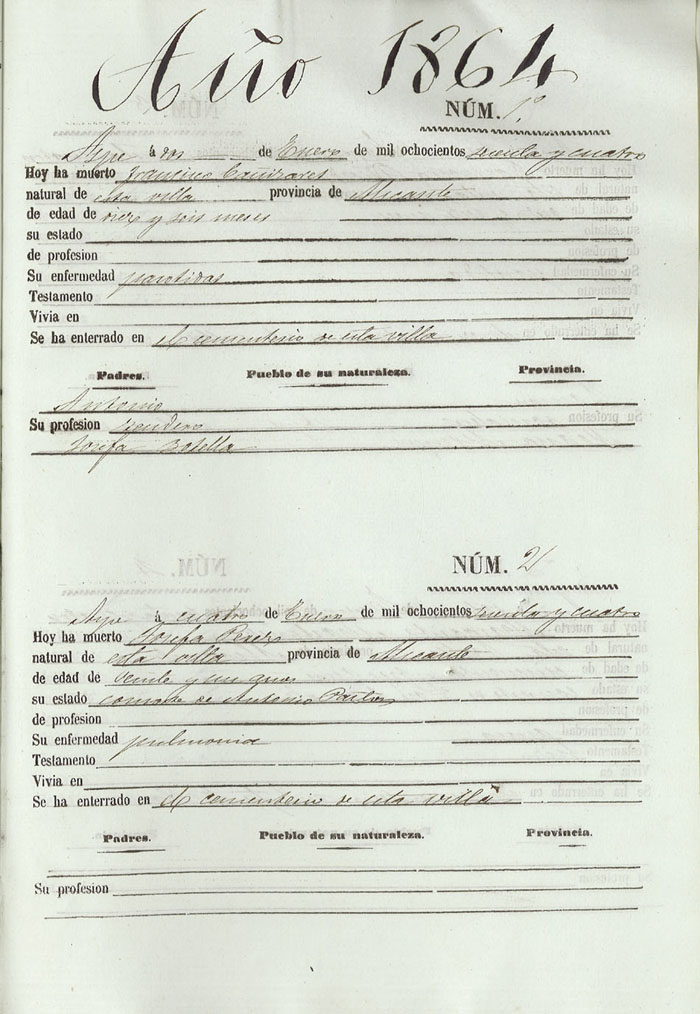 Año 1864
NÚM. 1º
Aspe á dos de Enero de mil ochocientos sesenta y cuatro
Hoy ha muerto Francisco Cañizares
natural de esta villa provincia de Alicante
de edad de diez y seis meses
su estado
de profesion
Su enfermedad parotidas
Testamento
Vivia en
Se ha enterrado en el cementerio de esta villa
Padres. Pueblo de su naturaleza. Provincia.
Antonio
Su profesion
Josefa Botella
NÚM. 2
Aspe á cuatro de Enero de mil ochocientos sesenta y cuatro
Hoy ha muerto Josefa Perez
natural de esta villa provincia de Alicante
de edad de veinte y un años
su estado consorte de Antonio Pastor
de profesion
Su enfermedad pulmonia
Testamento
Vivia en
Se ha enterrado en el cementerio de esta villa
Padres. Pueblo de su naturaleza. Provincia.
Su profesion